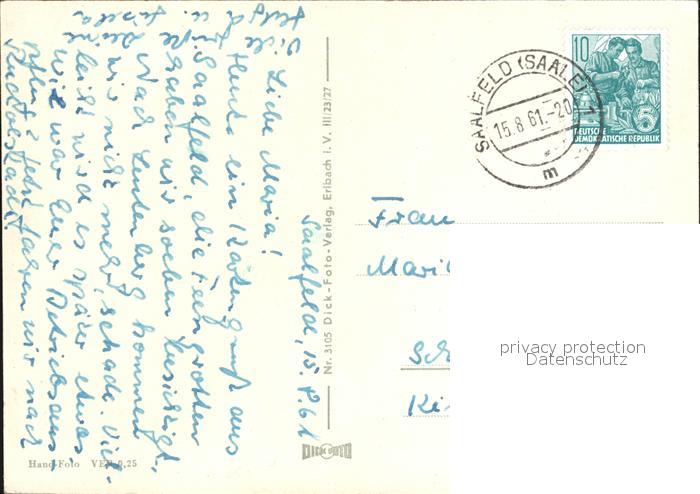 Saalfeld, 15.8.61
Liebe Maria!
Heute ein Kartengruß aus
Saalfeld, die Feengrotten
haben wir soeben besichtigt.
Nach Leutenberg kommen
wir nicht mehr, schade. Viel-
leicht wird es später etwas.
Wie war Euer Betriebsaus-
flug? Jetzt fahren wir nach
Rudolstadt.
Viele
Hand-Foto VEP 0,25
Nr. 3105 Dick-Foto-Verlag, Erlbach i. V. III/23/27
DICK FOTO
SAALFELD (SAALE) 1
15.8.61.-20
m
10
5
DEUTSCHE
DEMOKRATISCHE REPUBLIK
Frau
Mari
Sch
Ki
privacy protection
Datenschutz